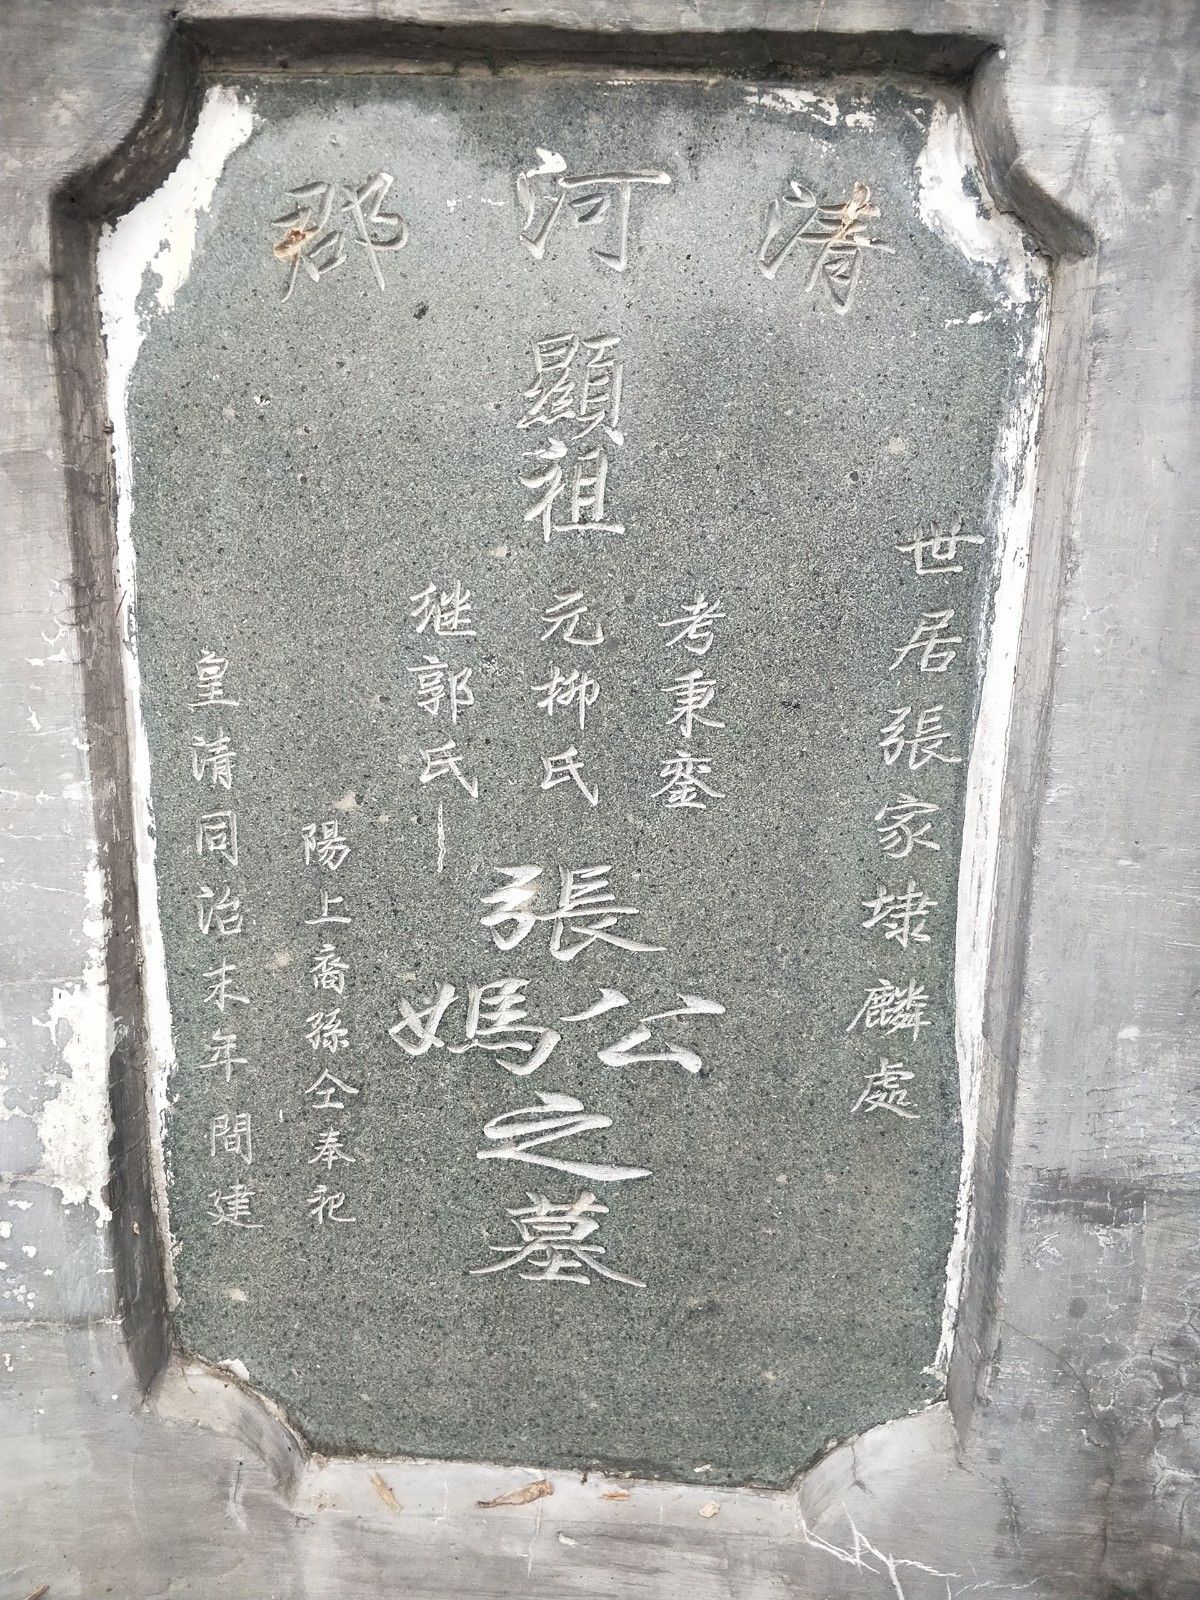 清河郡
世居張家埭麟處
顯祖
考秉銮
元柳氏
继郭氏
張公媽之墓
陽上裔孫仝奉祀
皇清同治末年間建